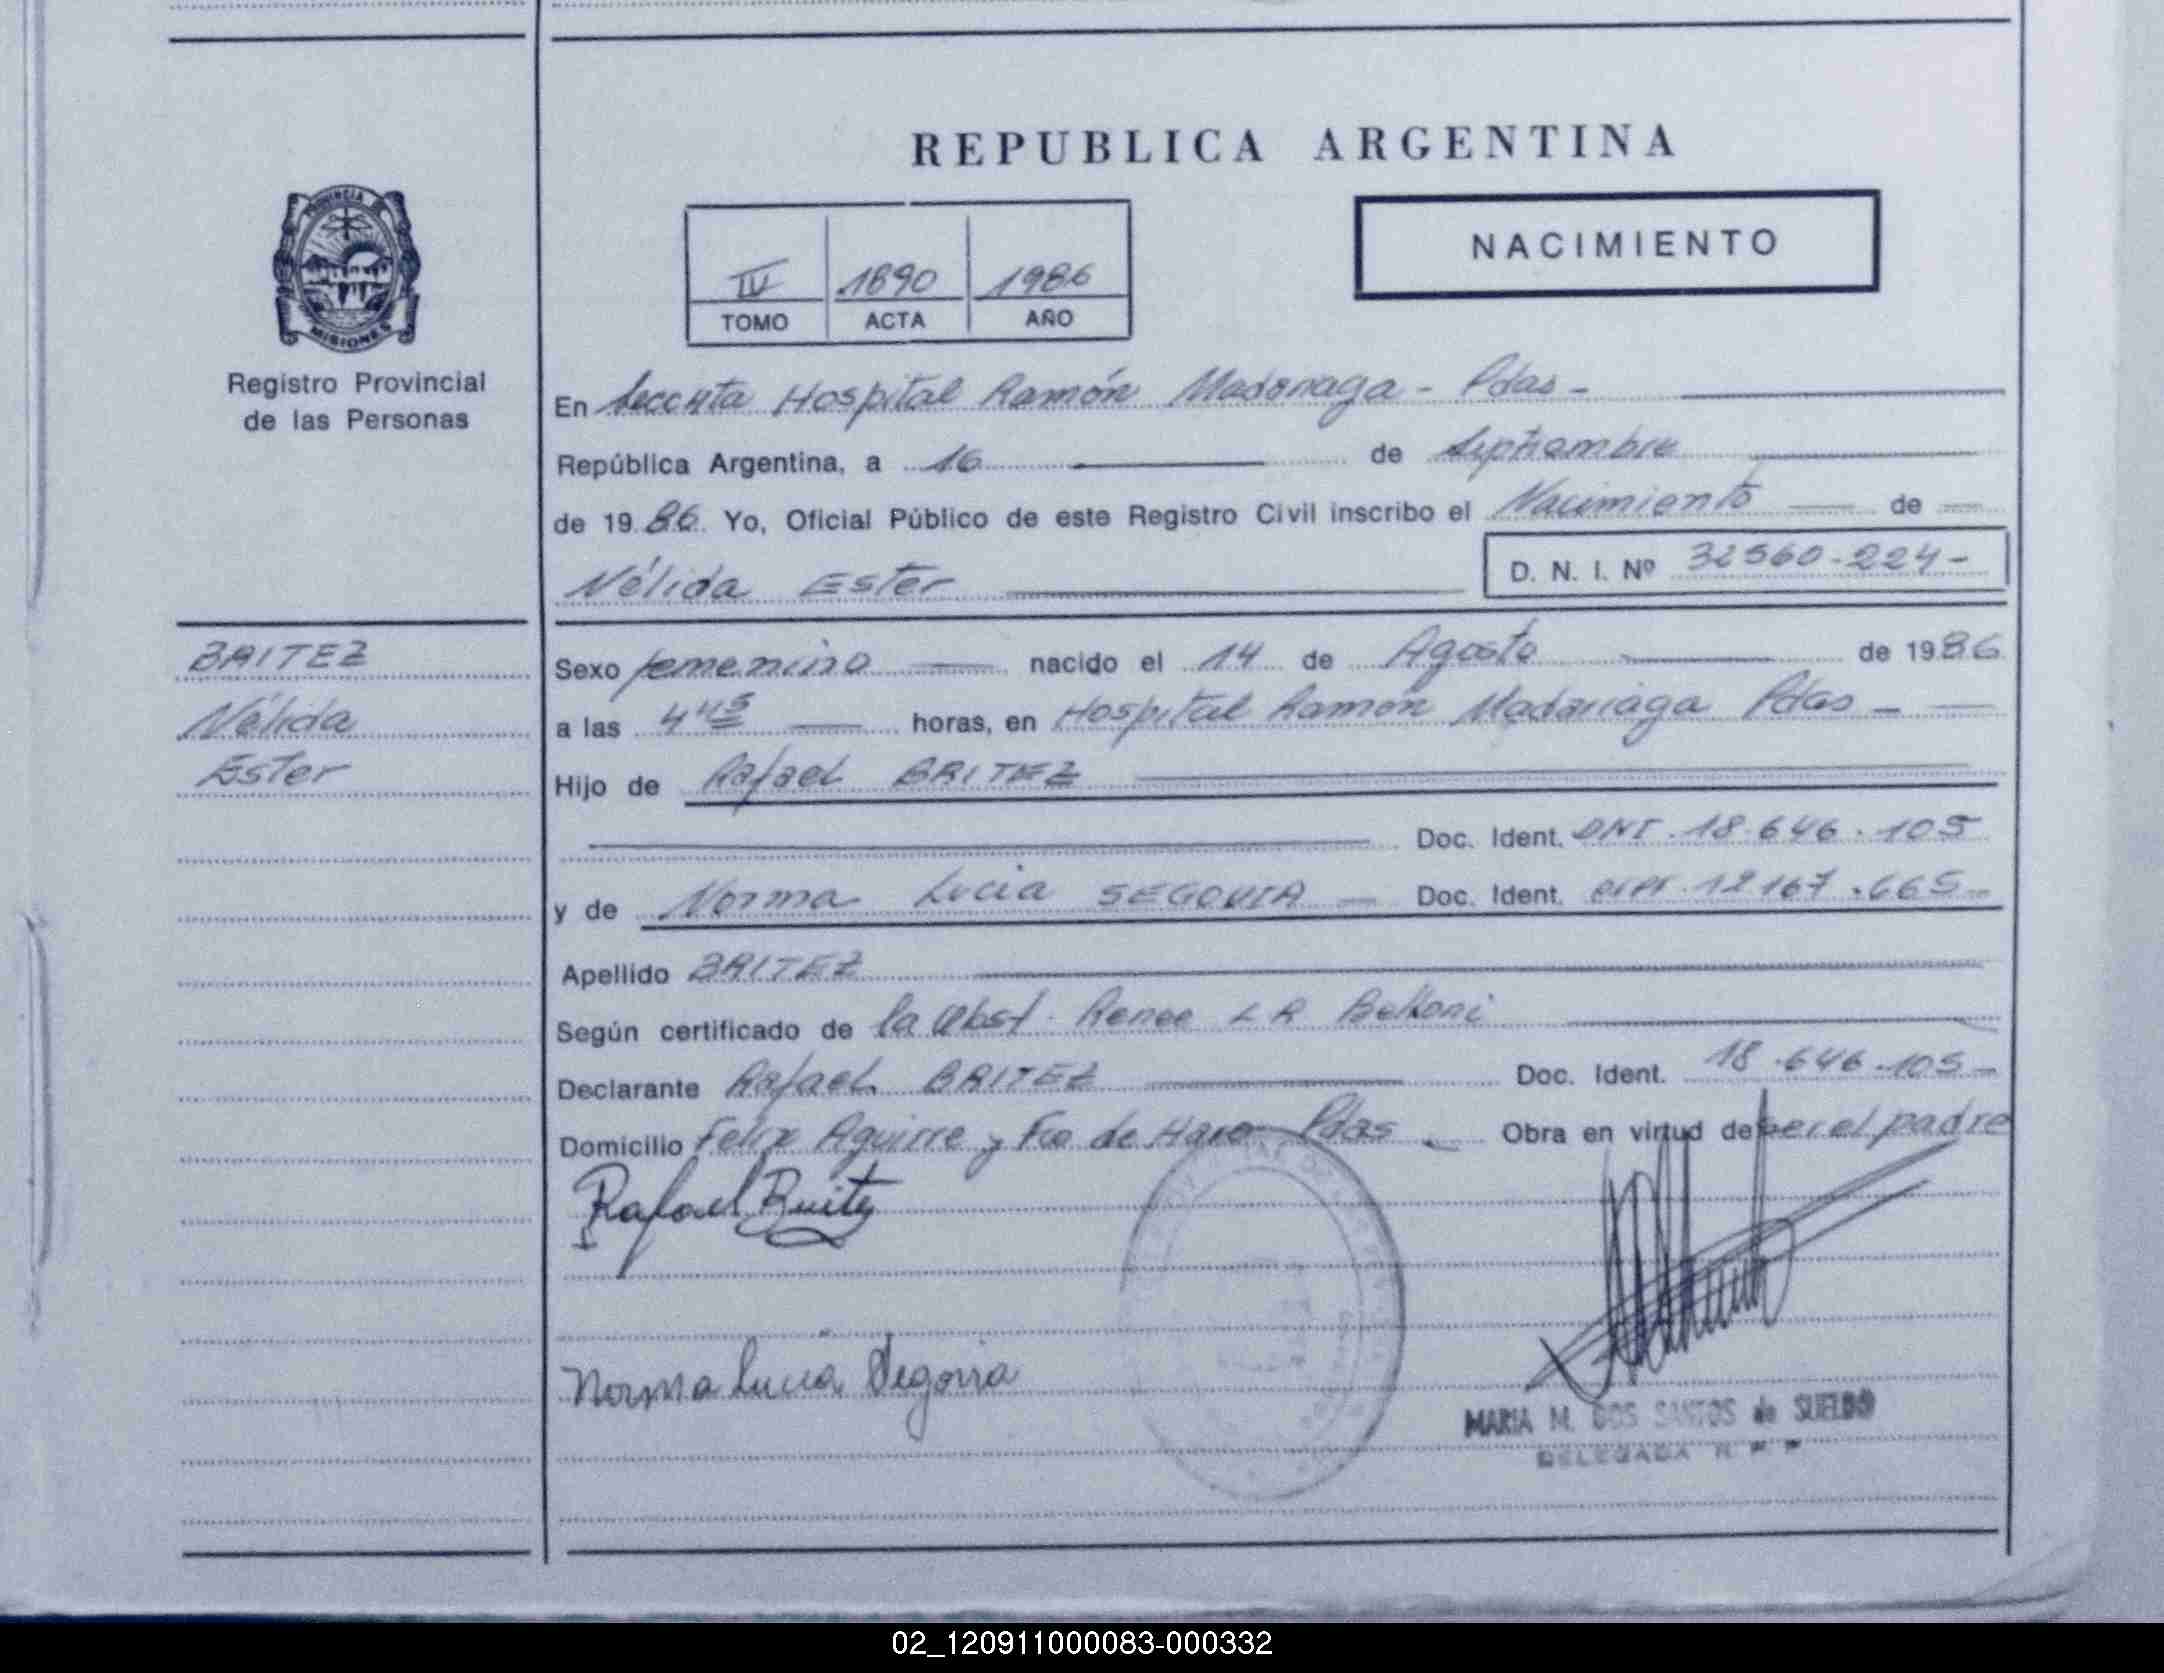 REPUBLICA ARGENTINA
NACIMIENTO
IV 1890 1986
TOMO ACTA AÑO
PROVINCIA DE
MISIONES
Registro Provincial
de las Personas
En Hospital Ramón Madariaga - Pdas -
República Argentina, a 16 de Septiembre
de 1986. Yo, Oficial Público de este Registro Civil inscribo el Nacimiento de
Nélida Ester D. N. I. Nº 32560-224-
BRITEZ
Nélida
Ester
Sexo femenino nacido el 14 de Agosto de 1986
a las 4 45 horas, en Hospital Ramón Madariaga Pdas -
Hijo de Rafael BRITEZ
Doc. Ident. DNI. 18.646.105
y de Norma Lucia SEGOVIA Doc. Ident. 12167.665-
Apellido BRITEZ
Según certificado de la Obst. Renee L R Belloni
Declarante Rafael BRITEZ Doc. Ident. 18.646.105-
Domicilio Felix Aguirre y Fco de Haro Pdas Obra en virtud de ser el padre
Rafael Britez
Norma Lucia Segovia
MARIA M. DOS SANTOS de SUELDO
DELEGADA R P P
02_120911000083-000332